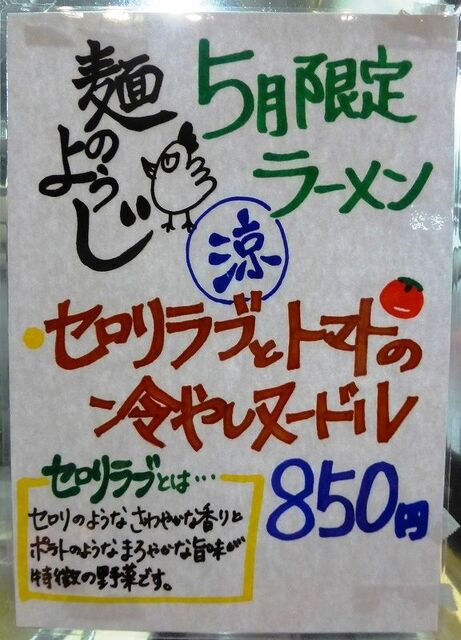 麺のようじ
5月限定
ラーメン
涼
・セロリラブとトマトの
冷やしヌードル
セロリラブとは…
セロリのようなさわやかな香りと
ポテトのようなまろやかな旨味が
特徴の野菜です。
850円